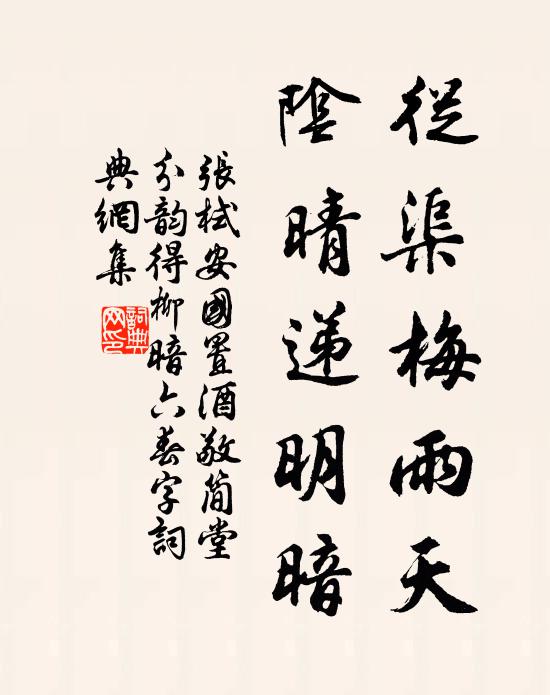 從渠梅雨天
陰晴递明暗
張栻安國置酒敬簡堂
分韵得柳暗六春字詞
典網集
詞典
网印